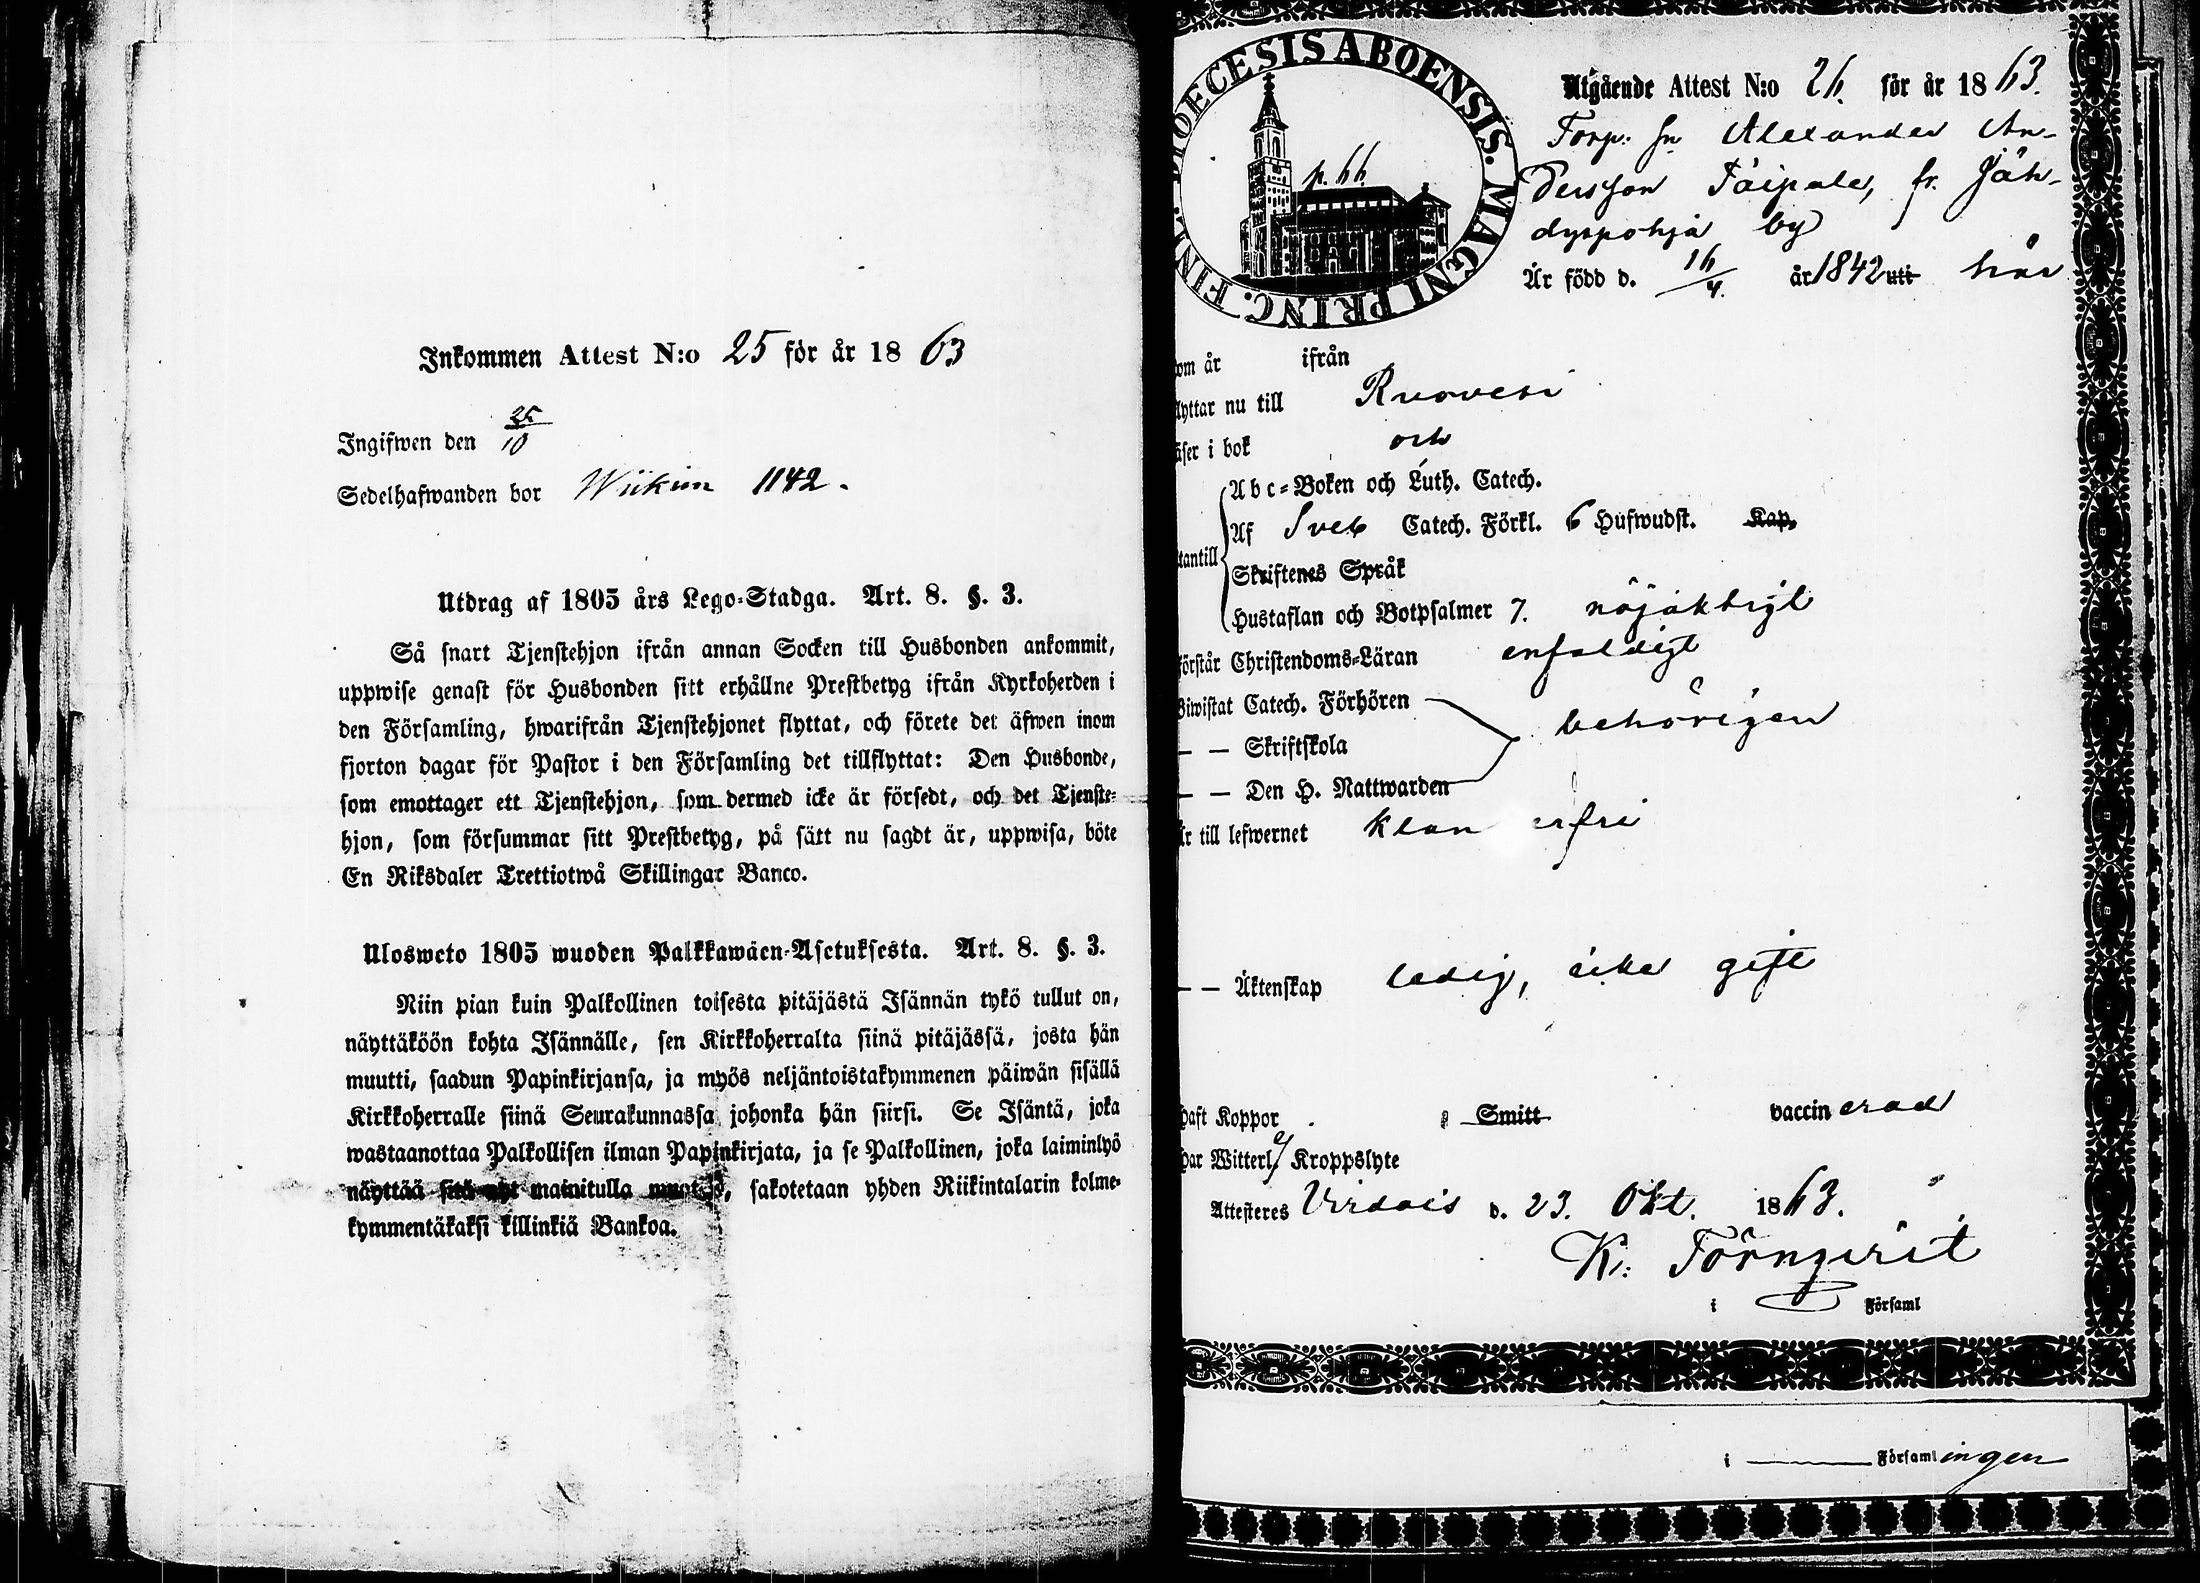 Inkommen Attest N:o 25 för år 1863
Ingifwen den 25/10
Sedelhafwanden bor 1142.
Utdrag af 1805 års Lego-Stadga. Art. 8. §. 3.
Så snart Tjenstehjon ifrån annan Socken till Husbonden ankommit,
uppwise genast för Husbonden sitt erhållne Prestbetyg ifrån Kyrkoherden i
den Församling, hwarifrån Tjenstehjonet flyttat, och förete det äfwen inom
fjorton dagar för Pastor i den Församling det tillflyttat: Den Husbonde,
som emottager ett Tjenstehjon, som dermed icke är försedt, och det Tjenste-
hjon, som försummar sitt Prestbetyg, på sätt nu sagdt är, uppwisa, böte
En Riksdaler Trettiotwå Skillingar Banco.
Ulosweto 1805 wuoden Palkkawäen-Asetuksesta. Art. 8. §. 3.
Niin pian kuin Palkollinen toisesta pitäjästä Isännän tykö tullut on,
näyttäköön kohta Isännälle, sen Kirkkoherralta siinä pitäjässä, josta hän
muutti, saadun Papinkirjansa, ja myös neljäntoistakymmenen päiwän sisällä
Kirkkoherralle siinä Seurakunnassa johonka hän siirsi. Se Isäntä, joka
wastaanottaa Palkollisen ilman Papinkirjata, ja se Palkollinen, joka laiminlyö
näyttää sitä nyt mainitulla muotoa, sakotetaan yhden Riikintalarin kolme-
kymmentäkaksi killinkiä Bankoa.
DIOECESIS ABOENSIS. MAGNI PRINC. FINL.
p. 66.
Utgående Attest N:o 26. för år 1863.
Torp: sn Alexander An-
dersson Taipale, fr. Jäh-
dyspohja by
Är född d. 16/4. år 1842 uti här
om år ifrån
lyttar nu till Ruovesi
äser i bok och
Abc-Boken och Luth. Catech.
Af Sveb Catech. Förkl. 6 Hufwudst. Kap.
tantill
Skriftenes Språk
Hustaflan och Botpsalmer 7. nöjaktigt
örstår Christendoms-Läran enfaldigt
Biwistat Catech. Förhören
— — Skriftskola behörigen
— — Den H. Nattwarden
är till lefwernet klanderfri
— — Äktenskap ledig, icke gift
haft Koppor Smitt vaccinerad
har Witterl. Kroppslyte
Attesteres Virdois d. 23. Okt. 1863.
K: Törnqvist
i Församl
i Församlingen